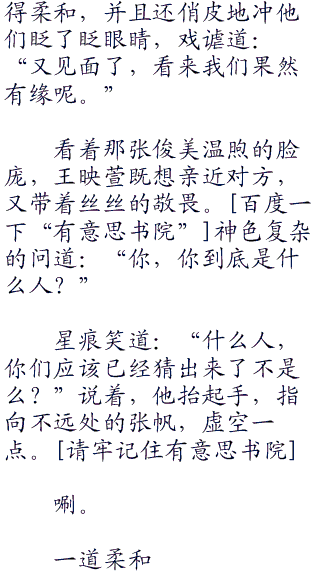 得柔和，并且还俏皮地冲他
们眨了眨眼睛，戏谑道：
“又见面了，看来我们果然
有缘呢。”
看着那张俊美温煦的脸
庞，王映萱既想亲近对方，
又带着丝丝的敬畏。[百度一
下“有意思书院”]神色复杂
的问道：“你，你到底是什
么人？”
星痕笑道：“什么人，
你们应该已经猜出来了不是
么？”说着，他抬起手，指
向不远处的张帆，虚空一
点。[请牢记住有意思书院]
唰。
一道柔和